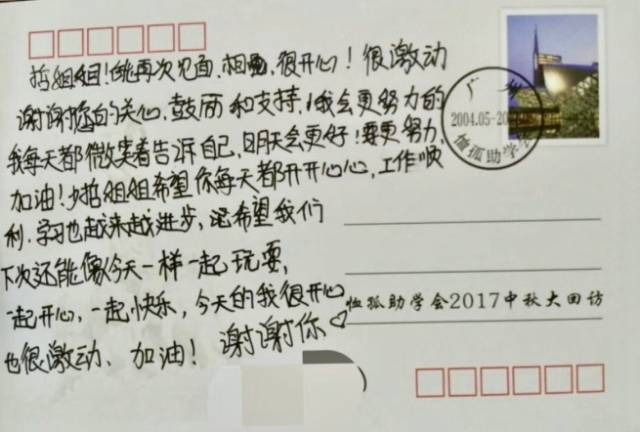 哲姐姐！能再次见面、相聚，很开心！很激动
谢谢您的关心，鼓励和支持，我会更努力的
我每天都微笑着告诉自己，明天会更好！要更努力，
加油！哲姐姐希望你每天都开开心心，工作顺
利，学习也越来越进步，也希望我们
下次还能像今天一样一起玩耍，
一起开心，一起快乐，今天的我很开心
也很激动、加油！谢谢你♡
2004.05-20
恤孤助学
恤孤助学会2017中秋大回访